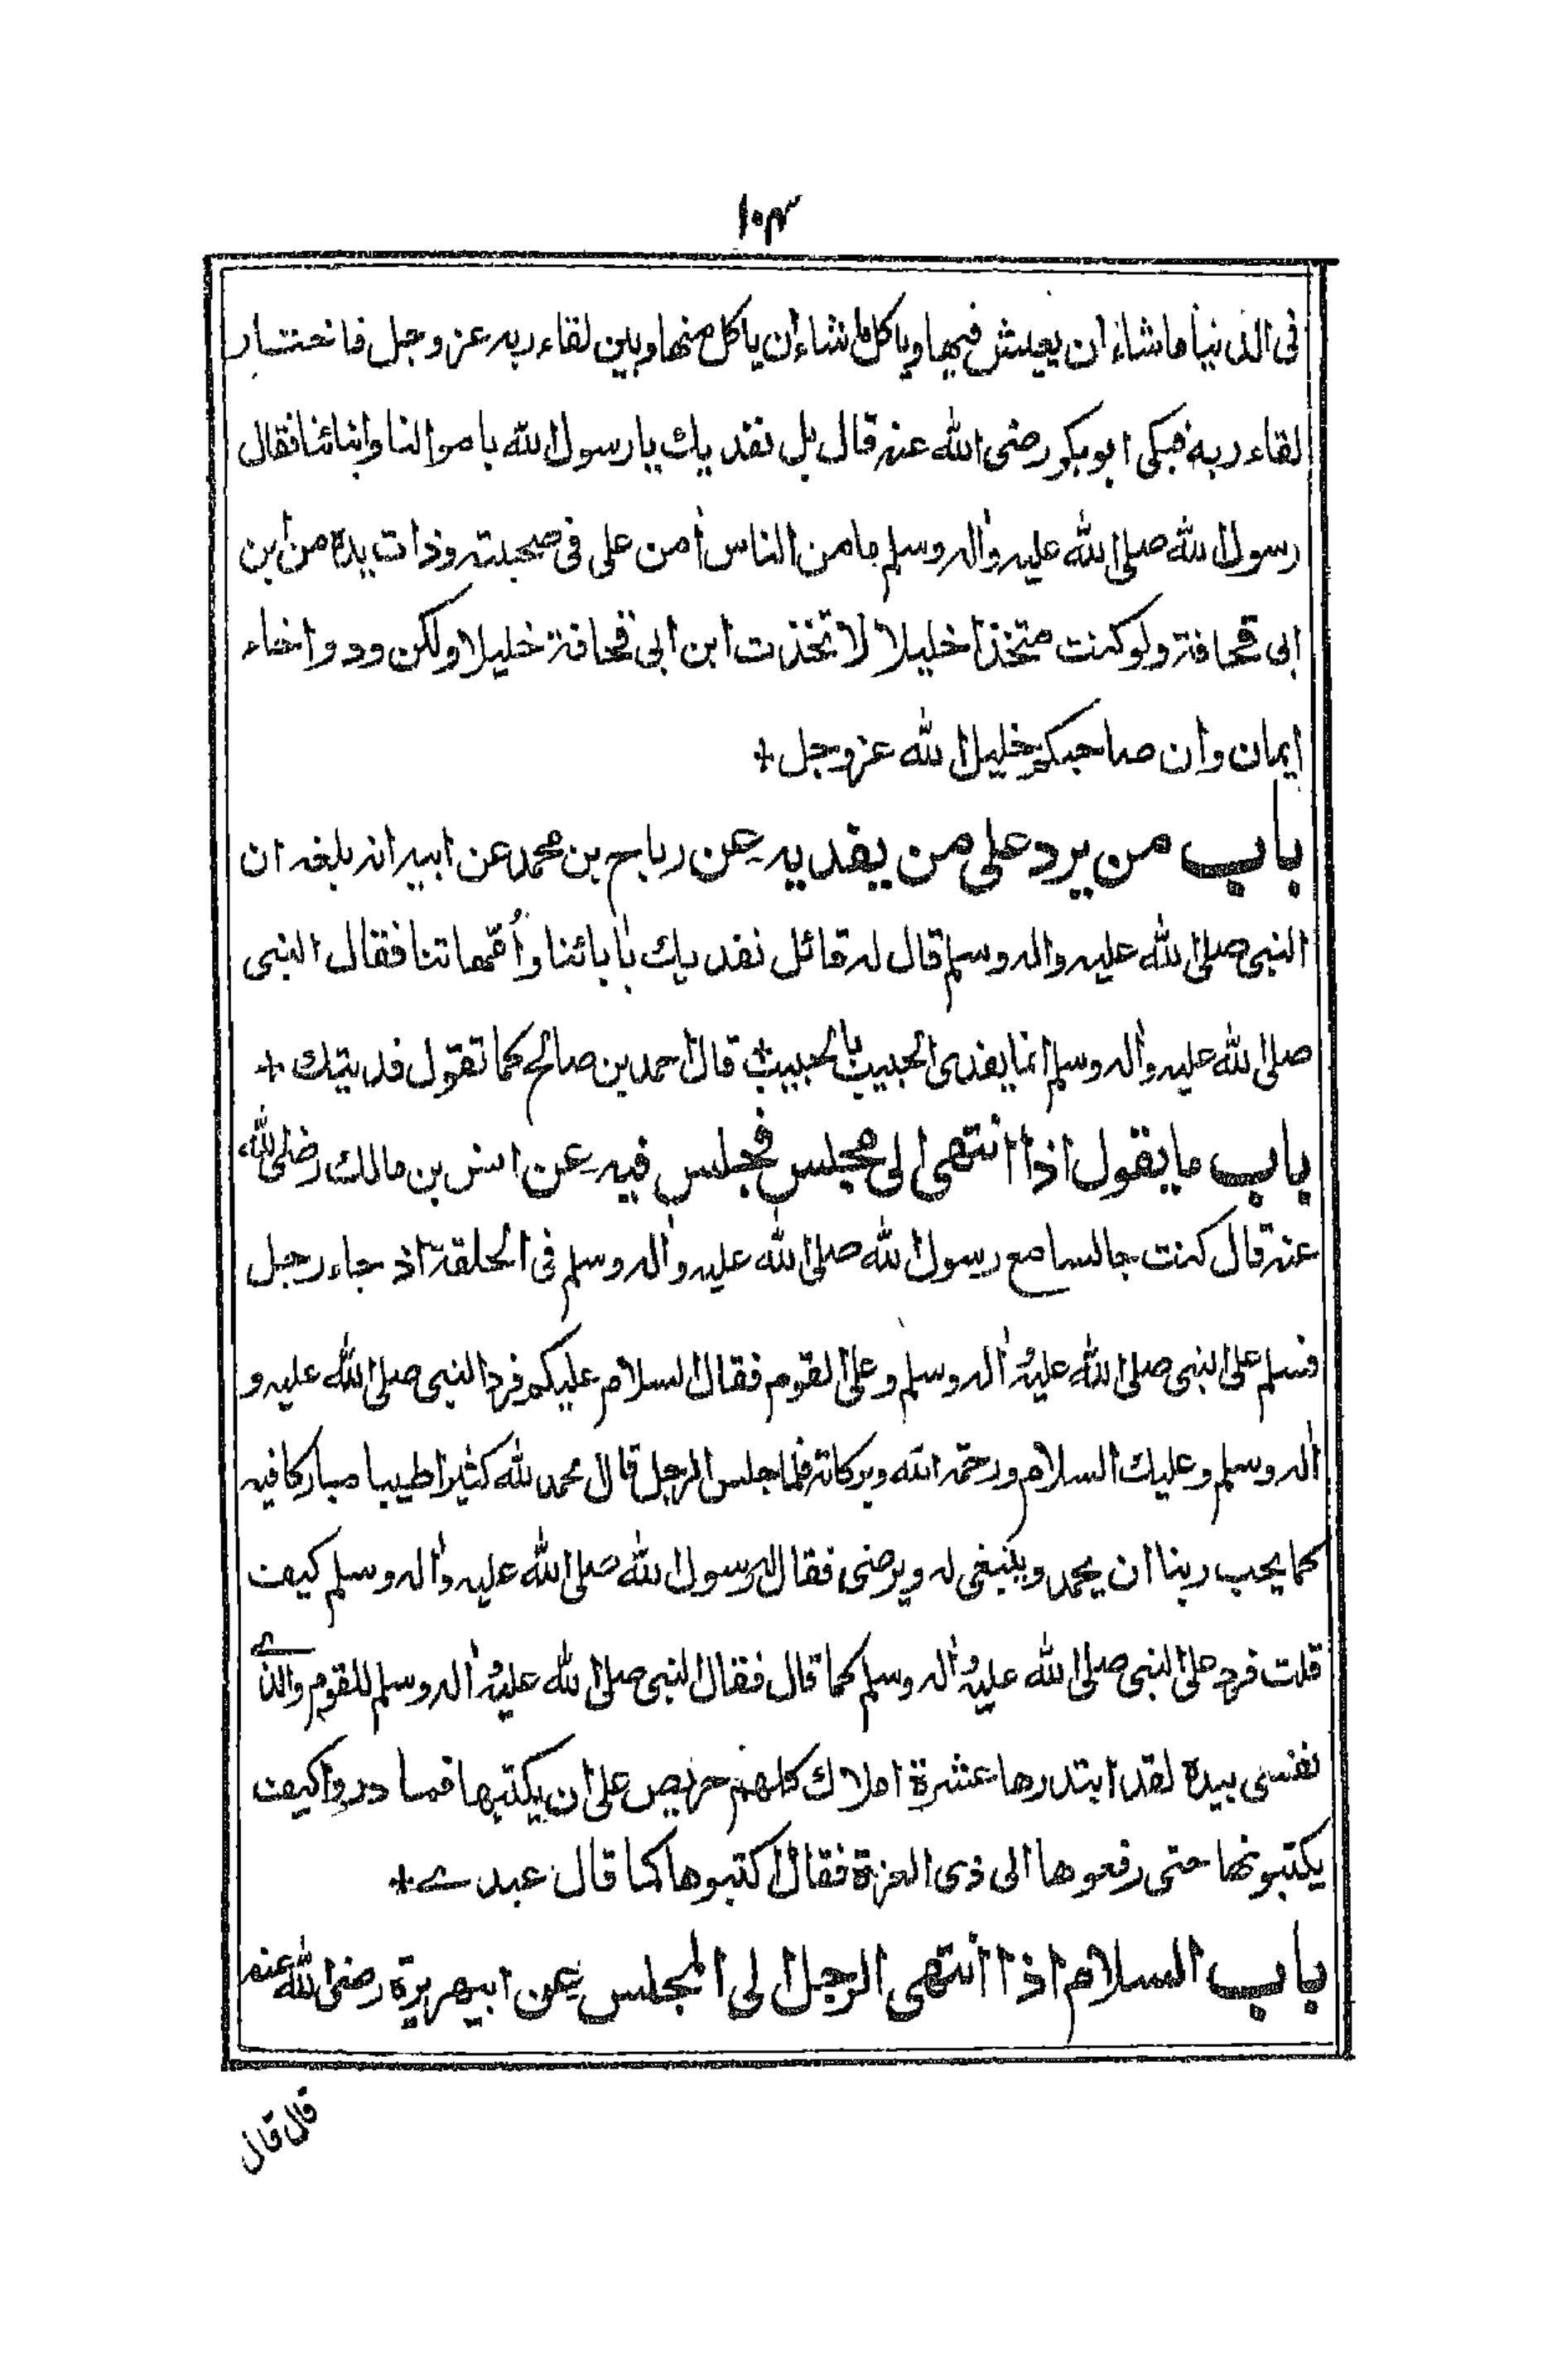 ۱۰۴
فی الدنیا ما شاء ان یعیش فیها ویاکل ما شاء ان یاکل منها وبین لقاء ربه عز وجل فاختار
لقاء ربه فبکی ابو بکر رضی الله عنه قال بل نفدیك یا رسول الله باموالنا وابنائنا فقال
رسول الله صلی الله علیه واٰله وسلم ما من الناس أمن علی فی صحبته وذات یده من ابن
ابی قحافة ولو کنت متخذا خلیلا لاتخذت ابن ابی قحافة خلیلا ولکن ود واخاء
ایمان وان صاحبکم خلیل الله عز وجل +
باب من یرد علی من یفدیه عن رباح بن محمد عن ابیه انه بلغه ان
النبی صلی الله علیه واله وسلم قال له قائل نفدیك بٰابائنا وأُمّهاتنا فقال النبی
صلی الله علیه واٰله وسلم انما یفدی الحبیب بالحبیب قال احمد بن صالح کما تقول فدیتك +
باب ما یقول اذا انتهی الی مجلس فجلس فیه عن انس بن مالك رضی الله
عنه قال کنت جالسا مع رسول الله صلی الله علیه واٰله وسلم فی الحلقة اذ جاء رجل
فسلم علی النبی صلی الله علیه واٰله وسلم وعلی القوم فقال السلام علیکم فرد النبی صلی الله علیه و
اٰله وسلم وعلیك السلام ورحمة الله وبرکاته فلما جلس الرجل قال محمد لله کثیرا طیبا مبارکا فیه
کما یحب ربنا ان یحمد وینبغی له ویرضی فقال له رسول الله صلی الله علیه واٰله وسلم کیف
قلت فرد علی النبی صلی الله علیه واٰله وسلم کما قال فقال النبی صلی الله علیه واٰله وسلم للقوم والذے
نفسی بیده لقد ابتدرها عشرة املاك کلهم حریص علی ان یکتبها فما دروا کیف
یکتبونها حتی رفعوها الی ذی العزة فقال اکتبوها کما قال عبدے +
باب السلام اذا انتهی الرجل الی المجلس عن ابیهریرة رضی الله عنه
قال قال